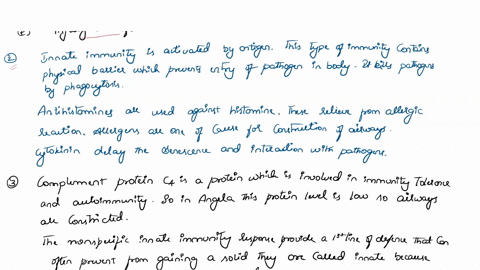 ② Innate immunity is activated by antigen. This type of immunity contains
physical barrier which prevents entry of pathogen in body. It kills pathogens
by phagocytosis.
Antihistamines are used against histamine. These relieve from allergic
reaction. Allergens are one of cause for constriction of airways.
Cytokinin delay the senescence and interaction with pathogens.
③ Complement protein C4 is a protein which is involved in immunity tolerance
and autoimmunity. So in Angela this protein level is low so airways
are constricted.
The nonspecific innate immunity response provide a 1st line of defense that can
often prevent from gaining a solid they are called innate because